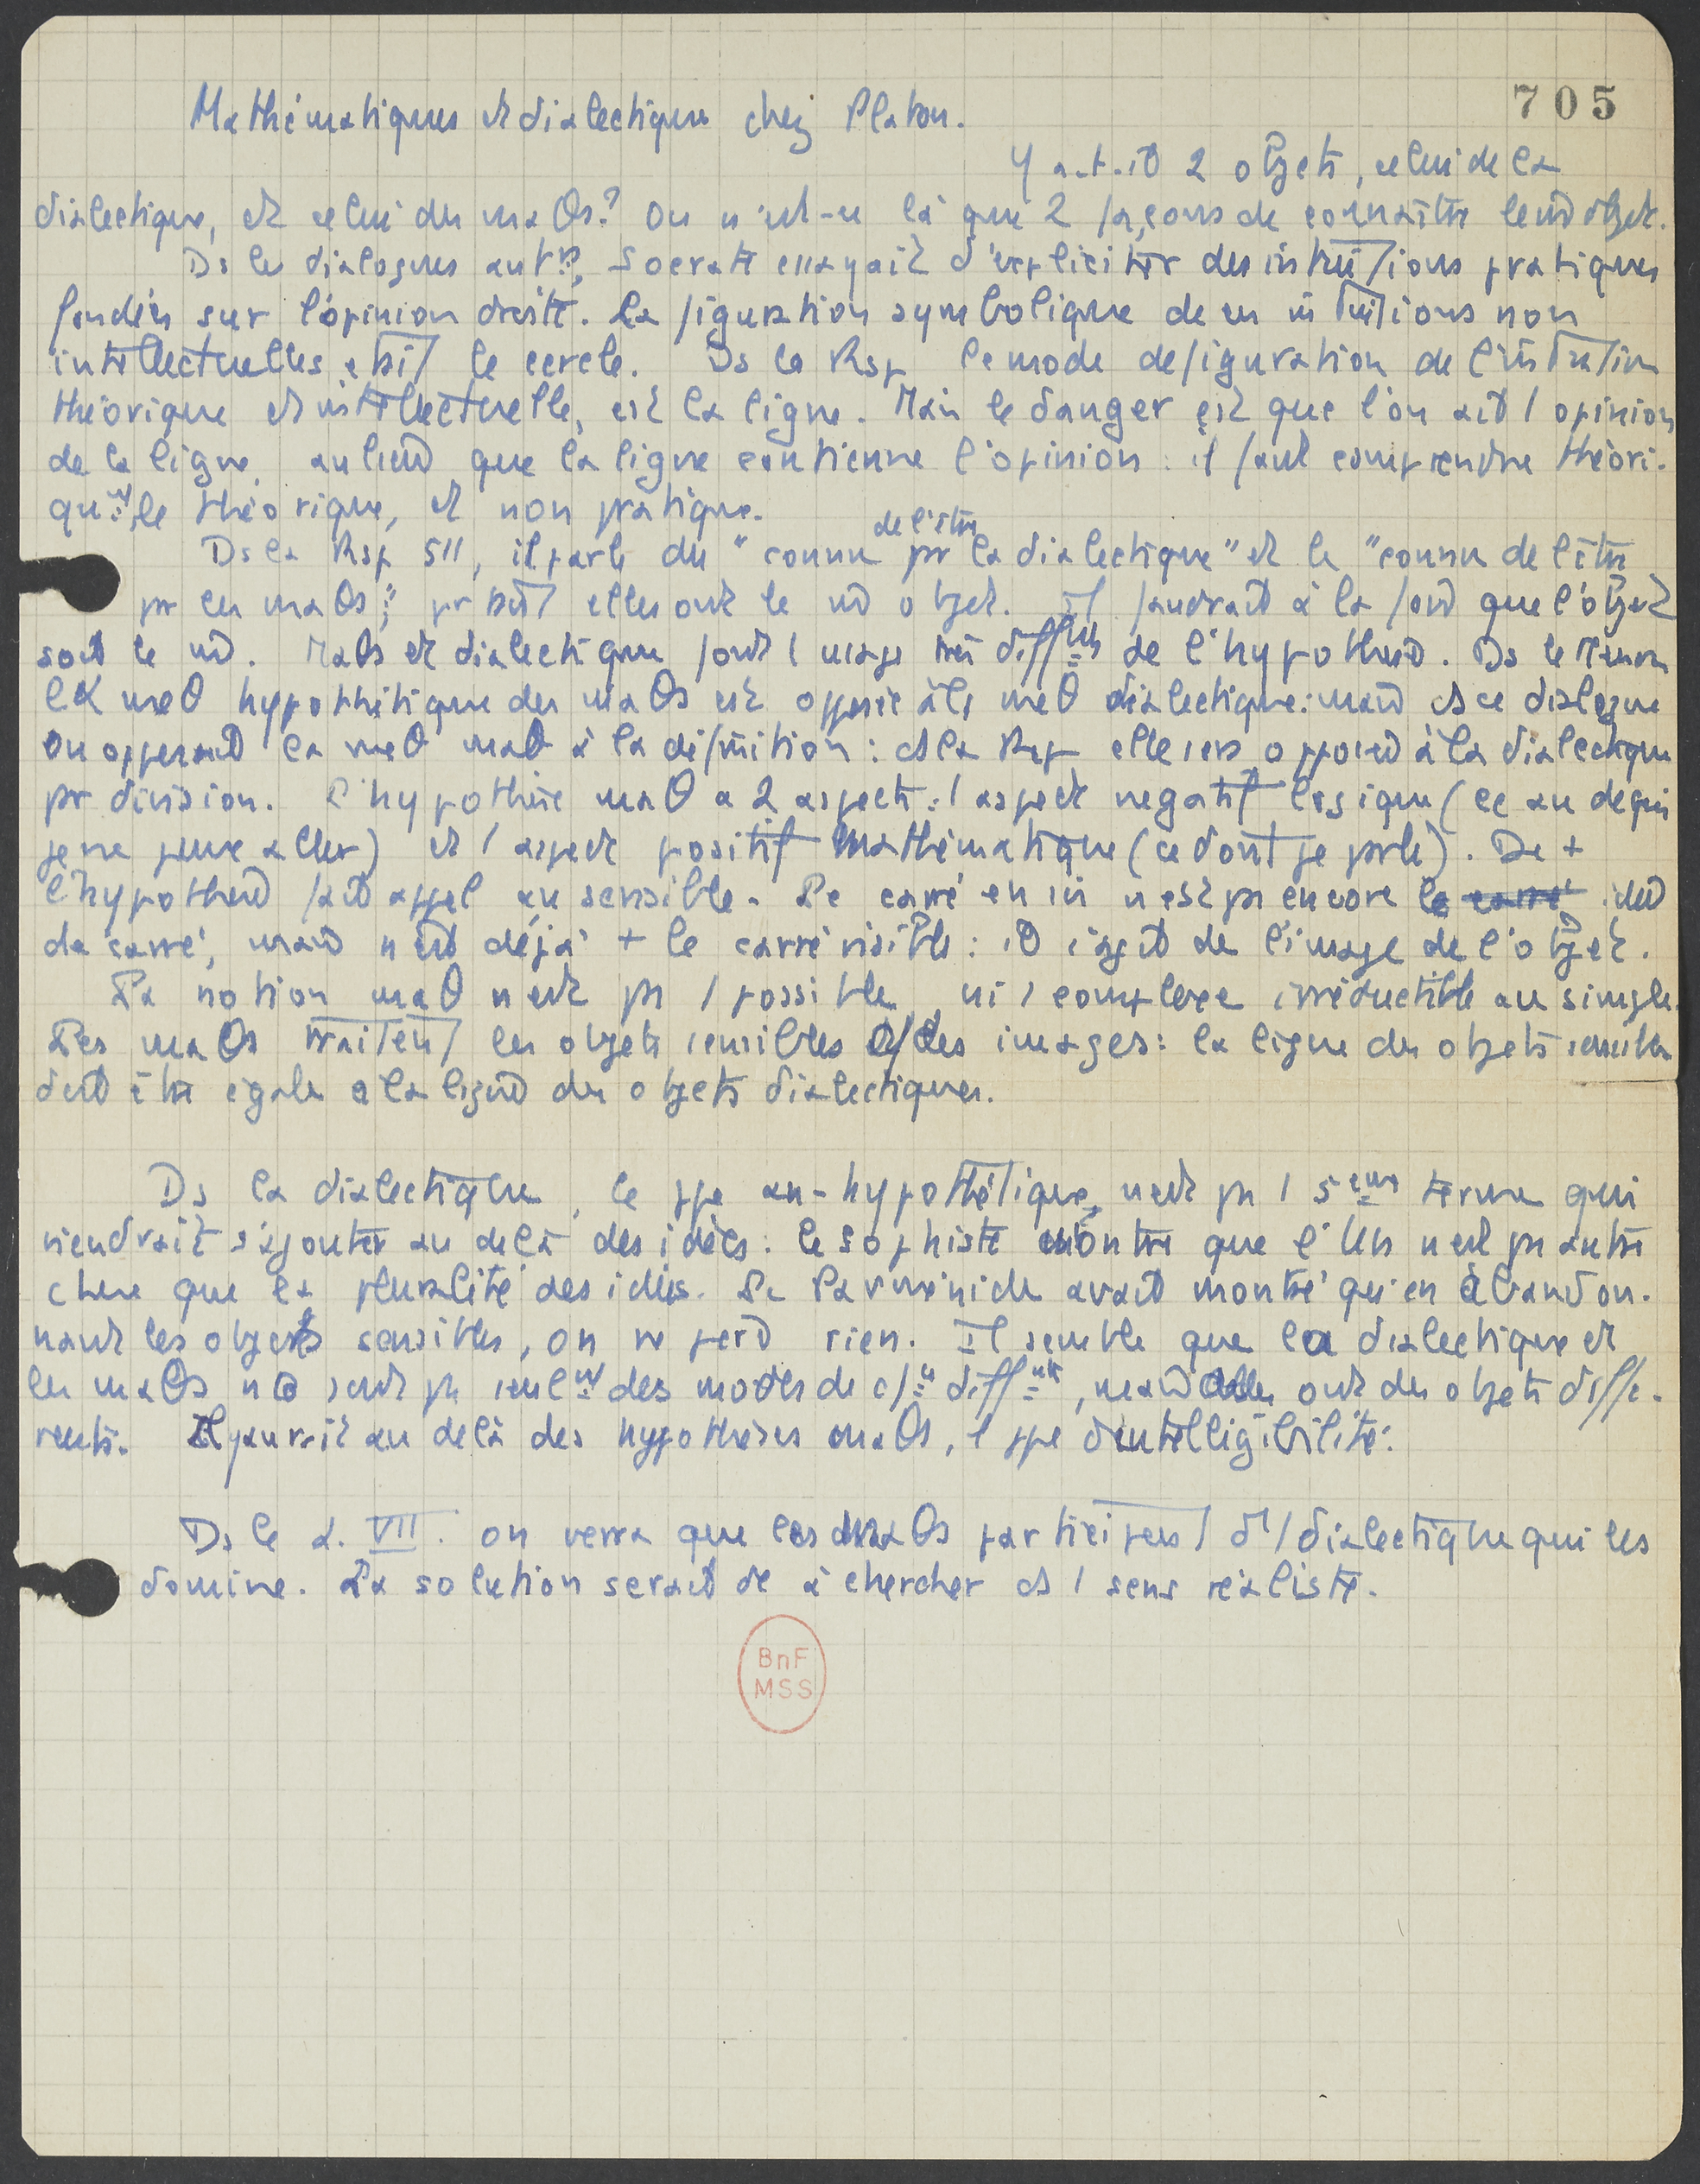 705
Mathématiques et dialectique chez Platon.
Y a-t-il 2 objets, celui de la
dialectique, et celui des maθs? Ou n'est-ce là que 2 façons de connaître le md objet.
Ds les dialogues antrs, Socrate essayait d'expliciter des intuitions pratiques
fondées sur l'opinion droite. La figuration symbolique de ces intuitions non
intellectuelles était le cercle. Ds la Rsp le mode de figuration de l'intuition
théorique et intellectuelle, est la ligne. Mais le danger est que l'on ait / opinion
de la ligne, au lieu que la ligne contienne l'opinion : il faut comprendre théori-
qunt le théorique, et non pratique.
de l'être
Ds la Rsp 511, il parle du "connu pr la dialectique" et le "connu de l'être
pr les maθs"; prtant elles ont le md objet. Il faudrait à la fois que l'objet
soit le md. Maθs et dialectique font / usage très différts de l'hypothese. Ds le Menon
la meθ hypothétique des maθs est opposée à la meθ dialectique: mais ds ce dialogue
on opposait la meθ maθ à la définition : ds la Rsp elle sera opposée à la dialectique
pr division. L'hypothèse maθ a 2 aspects : / aspect negatif logique (ce au delà de qui
je ne peux aller) et / aspect positif mathématique (ce dont je parle). De +
l'hypothese fait appel au sensible. Le carré en soi n'est ps encore le carré idée
de carré, mais n'est déjà + le carré visible : il s'agit de l'image de l'objet.
La notion maθ n'est ps / possible ni / complexe irréductible au simple.
Les maθs traitent les objets sensibles cf des images : la ligne des objets sensibles
doit être égale à la ligne des objets dialectiques.
Ds la dialectique, le ppe an-hypothétique, n'est ps / 5eme terme qui
viendrait s'ajouter au delà des idées : le Sophiste montre que l'Un n'est ps autre
chose que la pluralité des idées. Le Parménide avait montré qu'en abandon-
nant les objets sensibles, on ne perd rien. Il semble que la dialectique et
les maθs ne sont ps seult des modes de c/ce différts, mais elles ont des objets diffé-
rents. Il y aurait au delà des hypothèses maθs, / ppe d'intelligibilité.
Ds le L. VII. on verra que les maθs participent d'/ dialectique qui les
domine. La solution serait de à chercher ds / sens réaliste.
BnF
MSS